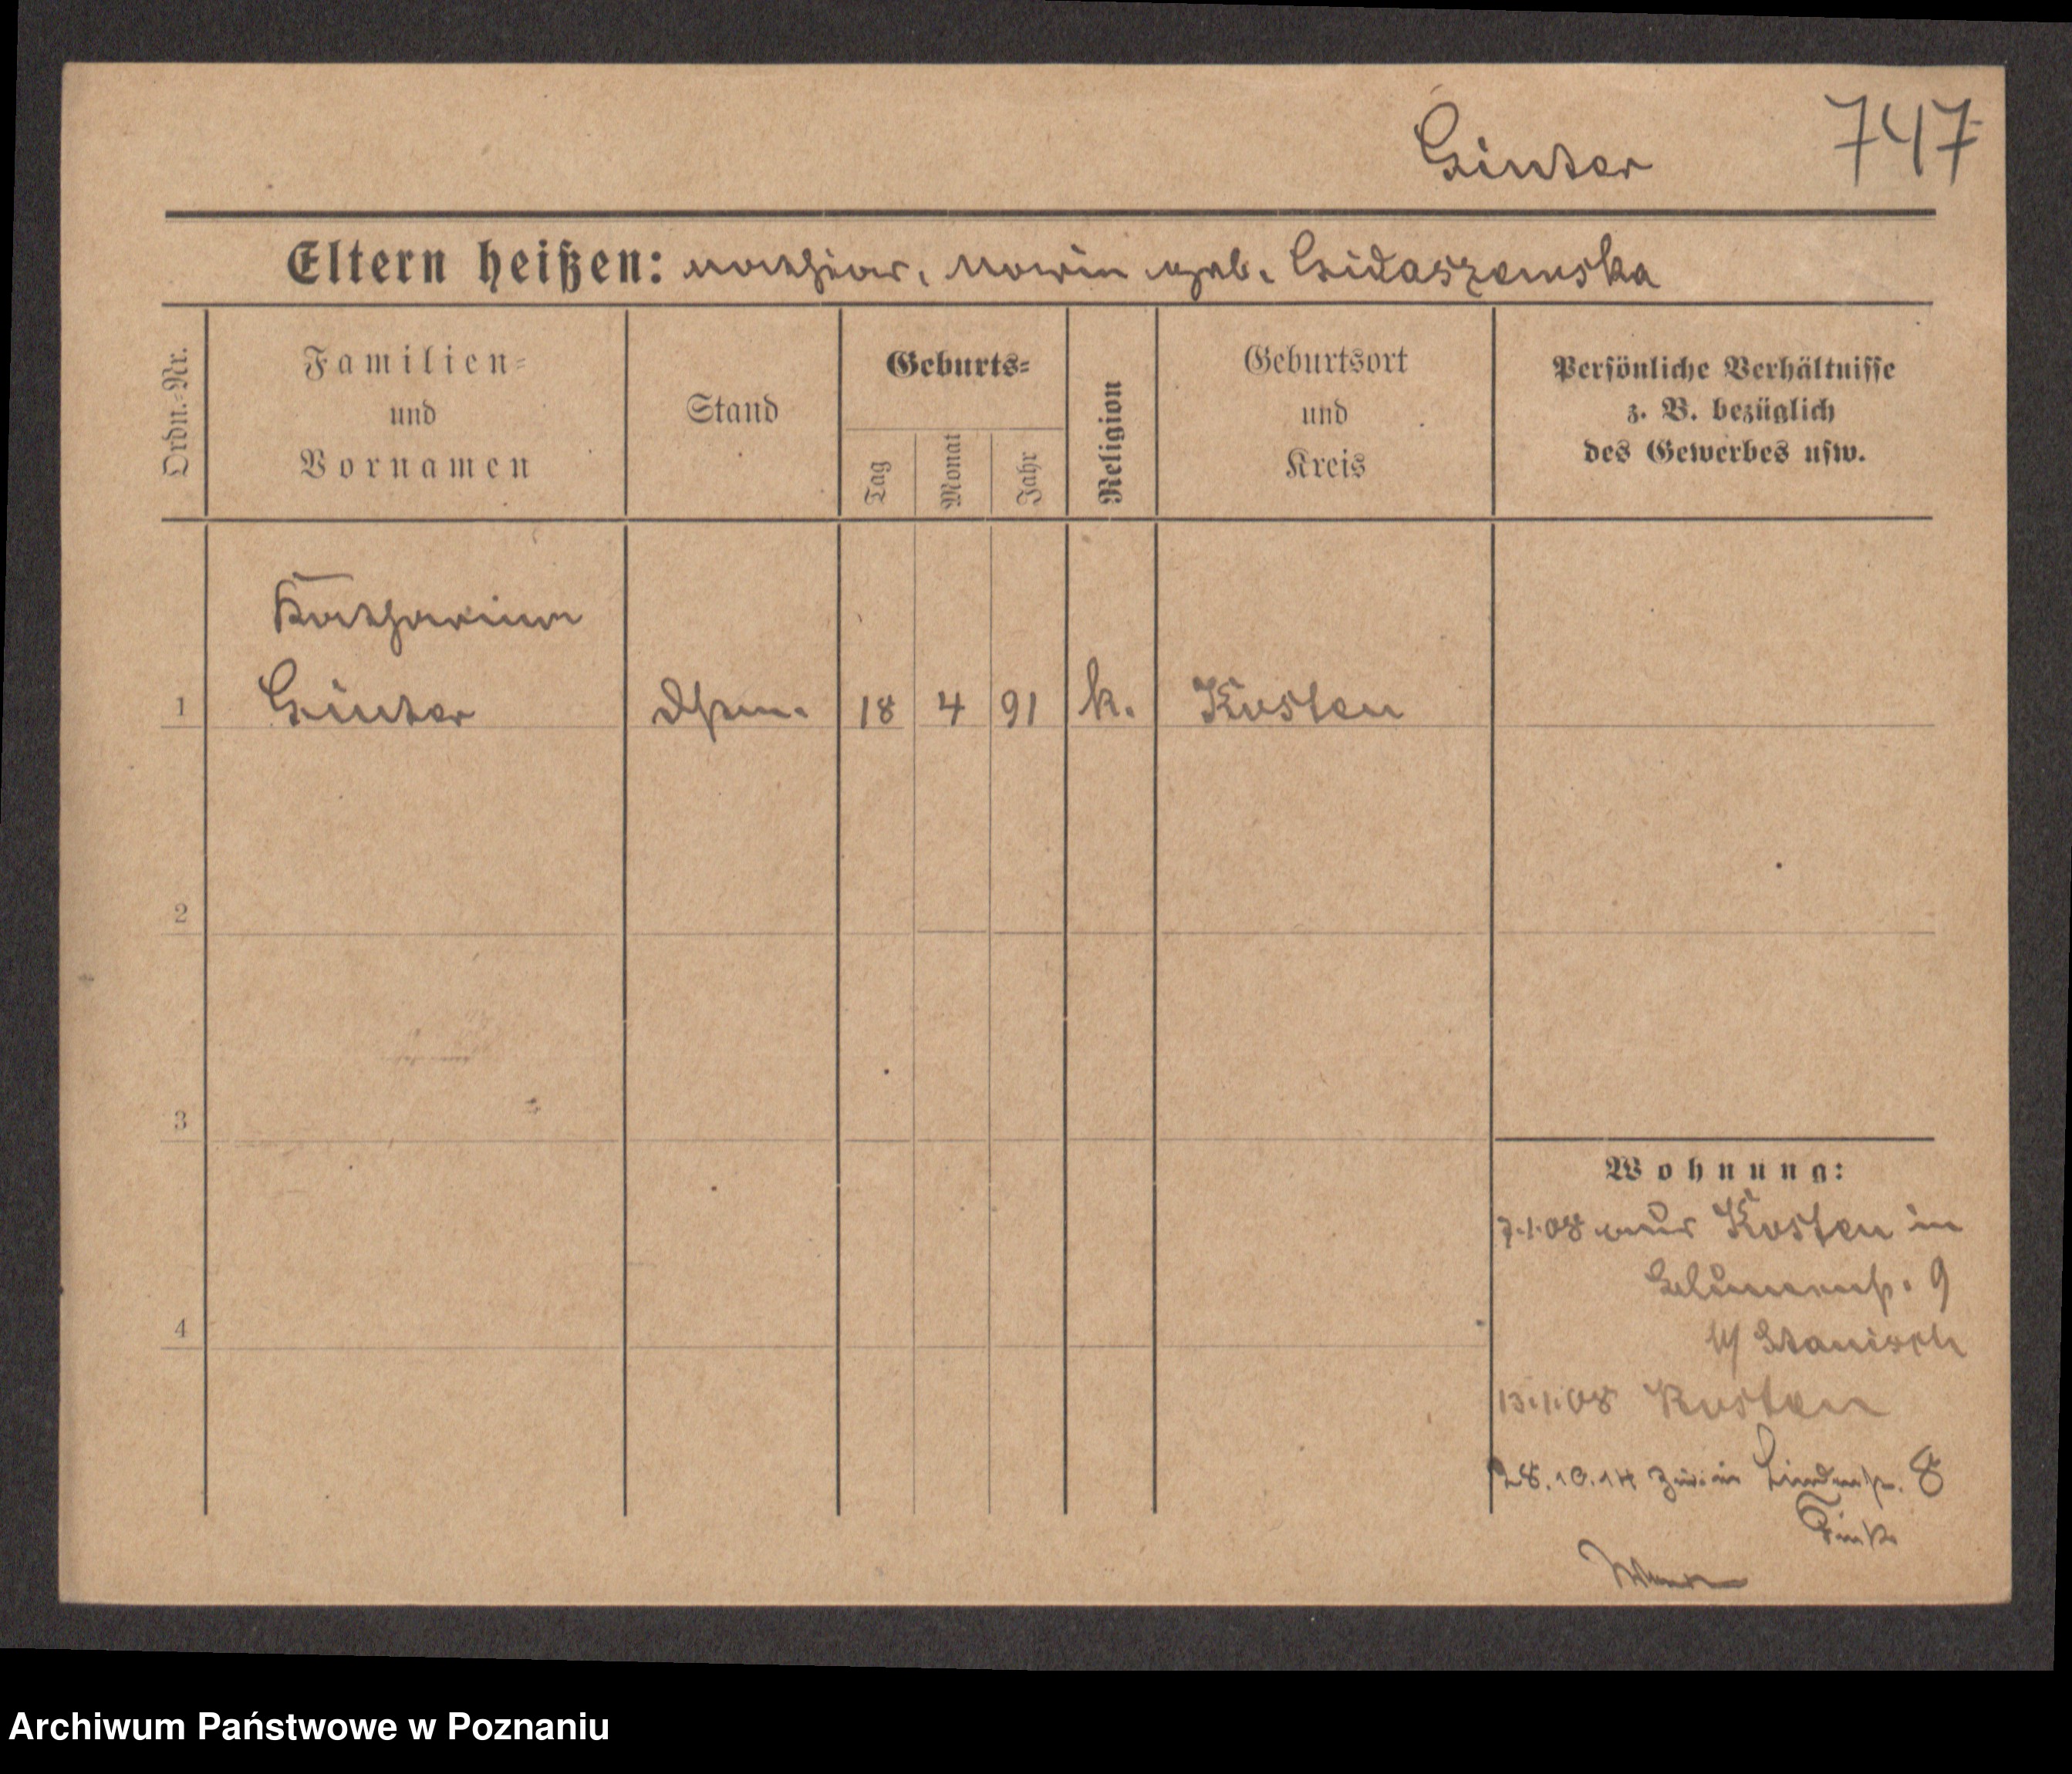 Ginter 747
Eltern heißen: Mathias, Maria geb. Gidaszewska
Ordn.-Nr.
Familien-
und
Vornamen
Stand
Geburts-
Tag
Monat
Jahr
Religion
Geburtsort
und
Kreis
Persönliche Verhältnisse
z. B. bezüglich
des Gewerbes usw.
Katharina
1 Ginter 18 4 91 k. Kosten
2
3
4
Wohnung:
7.1.08 aus Kosten in
Blumenstr. 9
Stanisch
13.1.08 Kosten
28.10.14 in Lindenstr. 8
Archiwum Państwowe w Poznaniu